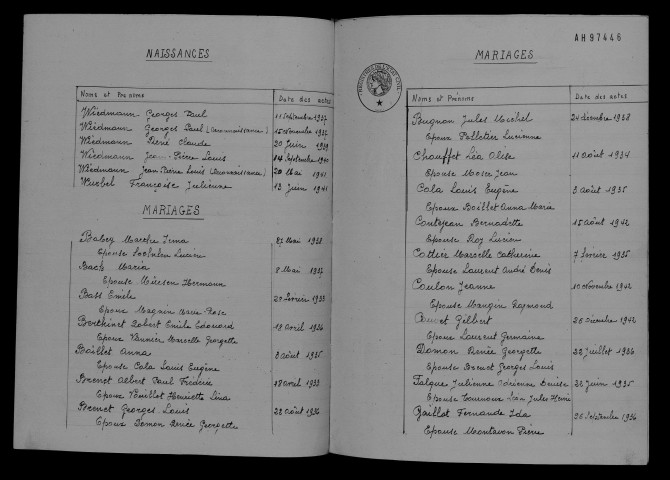 NAISSANCES
Noms et Prénoms Date des actes
Wiedmann Georges Paul 11 septembre 1937
Wiedmann Georges Paul (reconnaissance) 15 novembre 1937
Wiedmann René Claude 20 Juin 1939
Wiedmann Jean-Pierre Louis 14 septembre 1940
Wiedmann Jean Pierre Louis (reconnaissance) 20 Mai 1941
Françoise Julienne 13 Juin 1941
MARIAGES
Marthe Irma 27 Mai 1938
Epouse Lucien
Bach Maria 8 Mai 1937
Epouse Hermann
Bass Emile 20 Février 1933
Epoux Marie Rose
Berthinet Robert Emile Edouard 18 Avril 1936
Epoux Vannier Marcelle Georgette
Boillet Anna 3 août 1935
Epouse Cala Louis Eugène
Brenet Albert Paul Frédéric 18 avril 1933
Epoux Henriette Lina
Brenet Georges Louis 22 août 1936
Epoux Domon Renée Georgette
AH97446
MARIAGES
Noms et Prénoms Date des actes
Bugnon Jules Michel 24 décembre 1938
Epoux Pelletier Lucienne
Chauffet Léa Alise 11 août 1934
Epouse Moser Jean
Cala Louis Eugène 3 août 1935
Epoux Boillet Anna Maria
Contejean Bernadette 15 août 1942
Epouse Roy Lucien
Cottier Marcelle Catherine 7 février 1935
Epouse Laurent André Denis
Coulon Jeanne 10 novembre 1942
Epouse Mangin Raymond
Gilbert 26 décembre 1942
Epoux Laurent Germaine
Domon Renée Georgette 22 Juillet 1936
Epouse Brenet Georges Louis
Falque Julienne Adrienne Denise 22 Juin 1935
Epouse Jean Jules Henri
Gaillot Fernande Ida 26 Septembre 1936
Epouse Montavon Pierre